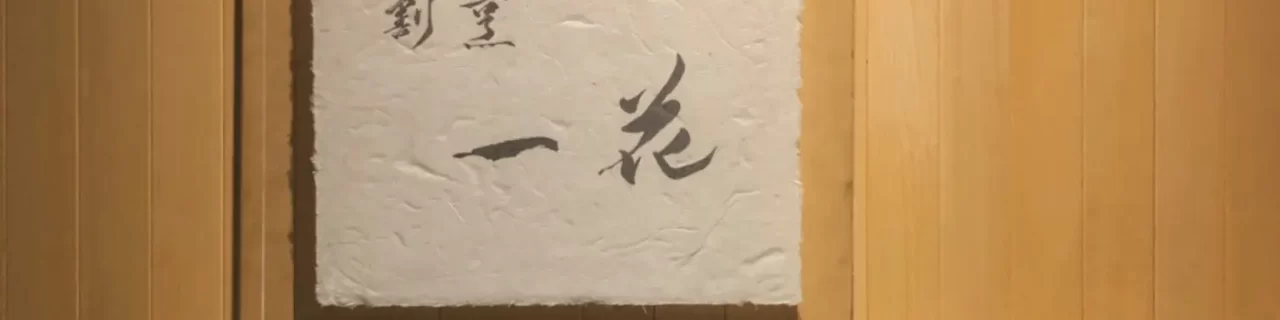 割烹
一花